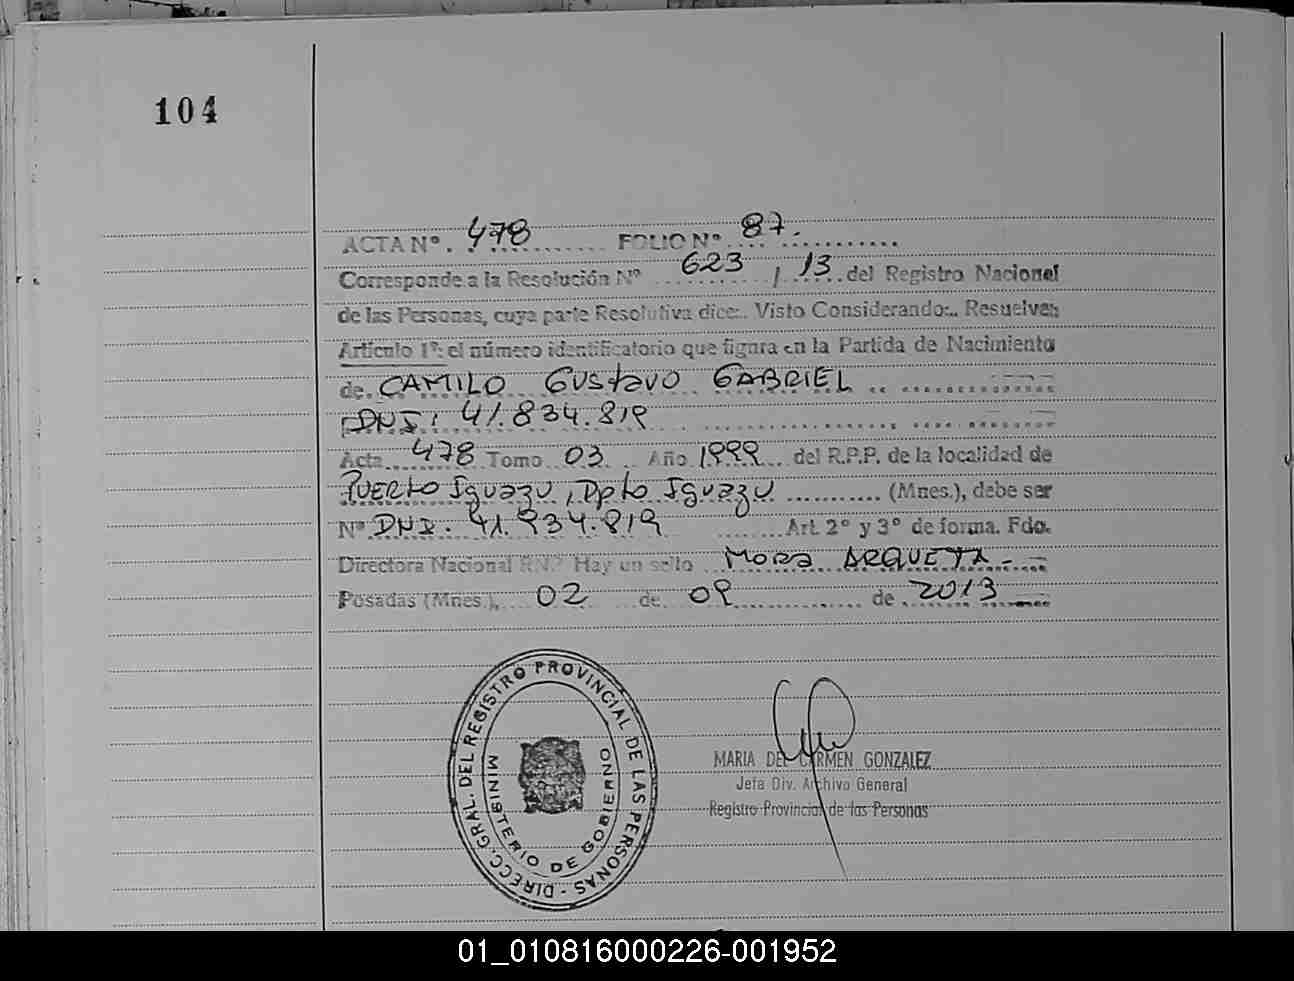 104
ACTA Nº. 478 FOLIO Nº 87.
Corresponde a la Resolución Nº 623 / 13 del Registro Nacional
de las Personas, cuya parte Resolutiva dice:. Visto Considerando:.. Resuelve:
Artículo 1º: el número identificatorio que figura en la Partida de Nacimiento
de CAMILO GUStavo GABRIEL
DNI: 41.834.819
Acta 478 Tomo 03 Año 1999 del R.P.P. de la localidad de
PUERto Iguazu, Dpto Iguazu (Mnes.), debe ser
Nº DNI. 41.934.819 Art. 2º y 3º de forma. Fdo.
Directora Nacional RN.P Hay un sello Mora ARQUETA.-
Posadas (Mnes.), 02 de 09 de 2013
DIRECC. GRAL. DEL REGISTRO PROVINCIAL DE LAS PERSONAS -
MINISTERIO DE GOBIERNO
MARIA DEL CARMEN GONZALEZ
Jefa Div. Archivo General
Registro Provincial de las Personas
01_010816000226-001952